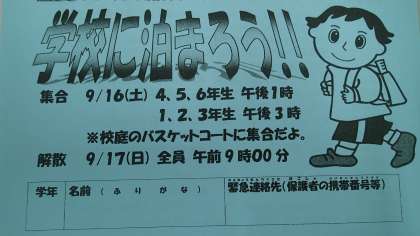 学校に泊まろう!!
集合 9/16(土) 4、5、6年生 午後1時
1、2、3年生 午後3時
※校庭のバスケットコートに集合だよ。
解散 9/17(日) 全員 午前9時00分
学年 名前(ふりがな) 緊急連絡先(保護者の携帯番号等)